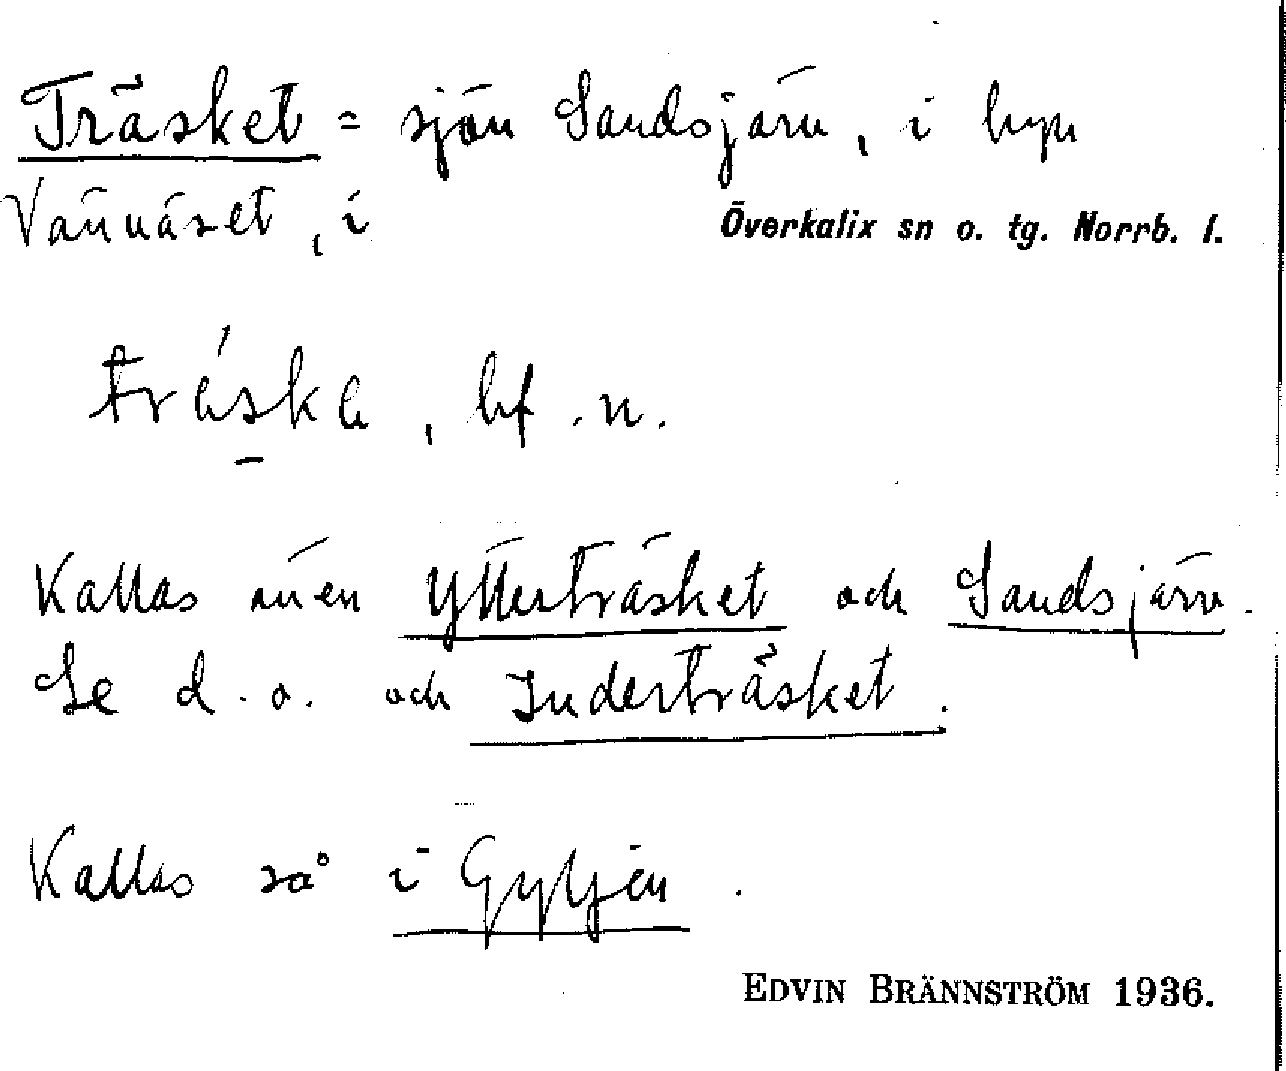 Träsket = sjön Sandsjärv, i byn
Vännäset, i Överkalix sn o. tg. Norrb. l.
bf. n.
Kallas även Ytterträsket och Sandsjärv.
Se d. o. och Inderträsket.
Kallas så i Gyljen.
EDVIN BRÄNNSTRÖM 1936.